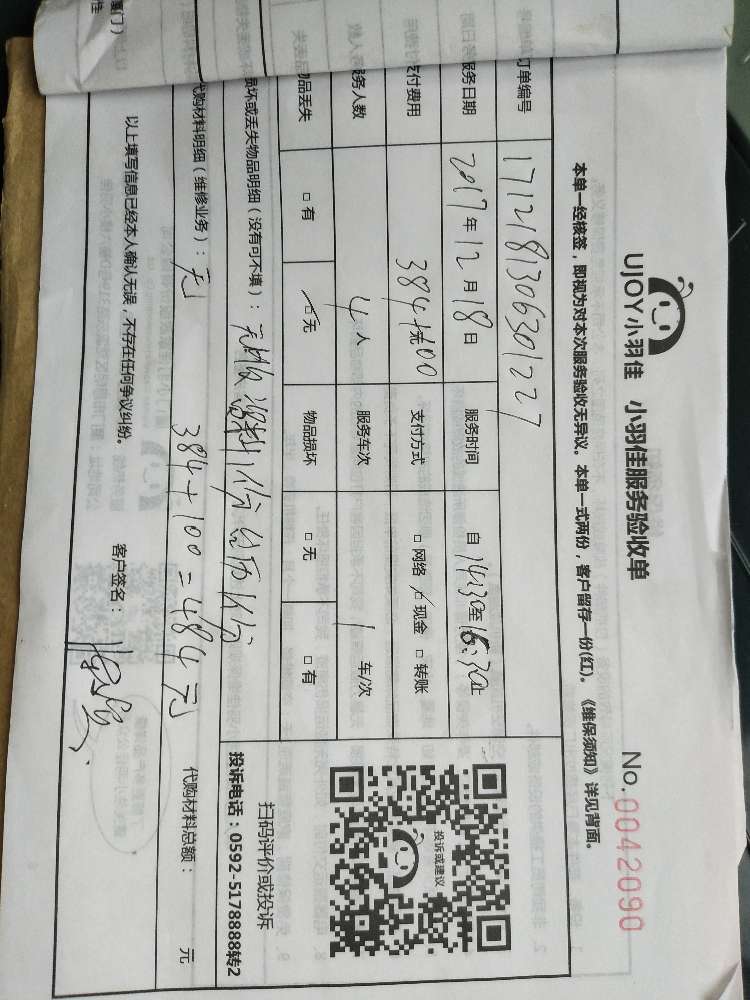 UJOY小羽佳 小羽佳服务验收单
No.0042090
本单一经核签，即视为对本次服务验收无异议。本单一式两份，客户留存一份(红)。《维保须知》详见背面。
订单编号 1712181306301227
服务日期 2017年12月18日 服务时间 自14:30至16:30止
支付费用 384元+100 支付方式 □网络 ☑现金 □转账
服务人数 4人 服务车次 1车/次
物品丢失 □有 ☑无 物品损坏 □无 □有
损坏或丢失物品明细（没有可不填）：
代购材料明细（维修业务）：无 384+100=484元 代购材料总额： 元
以上填写信息已经本人确认无误，不存在任何争议纠纷。 客户签名：
投诉或建议
扫码评价或投诉
投诉电话：0592-5178888转2